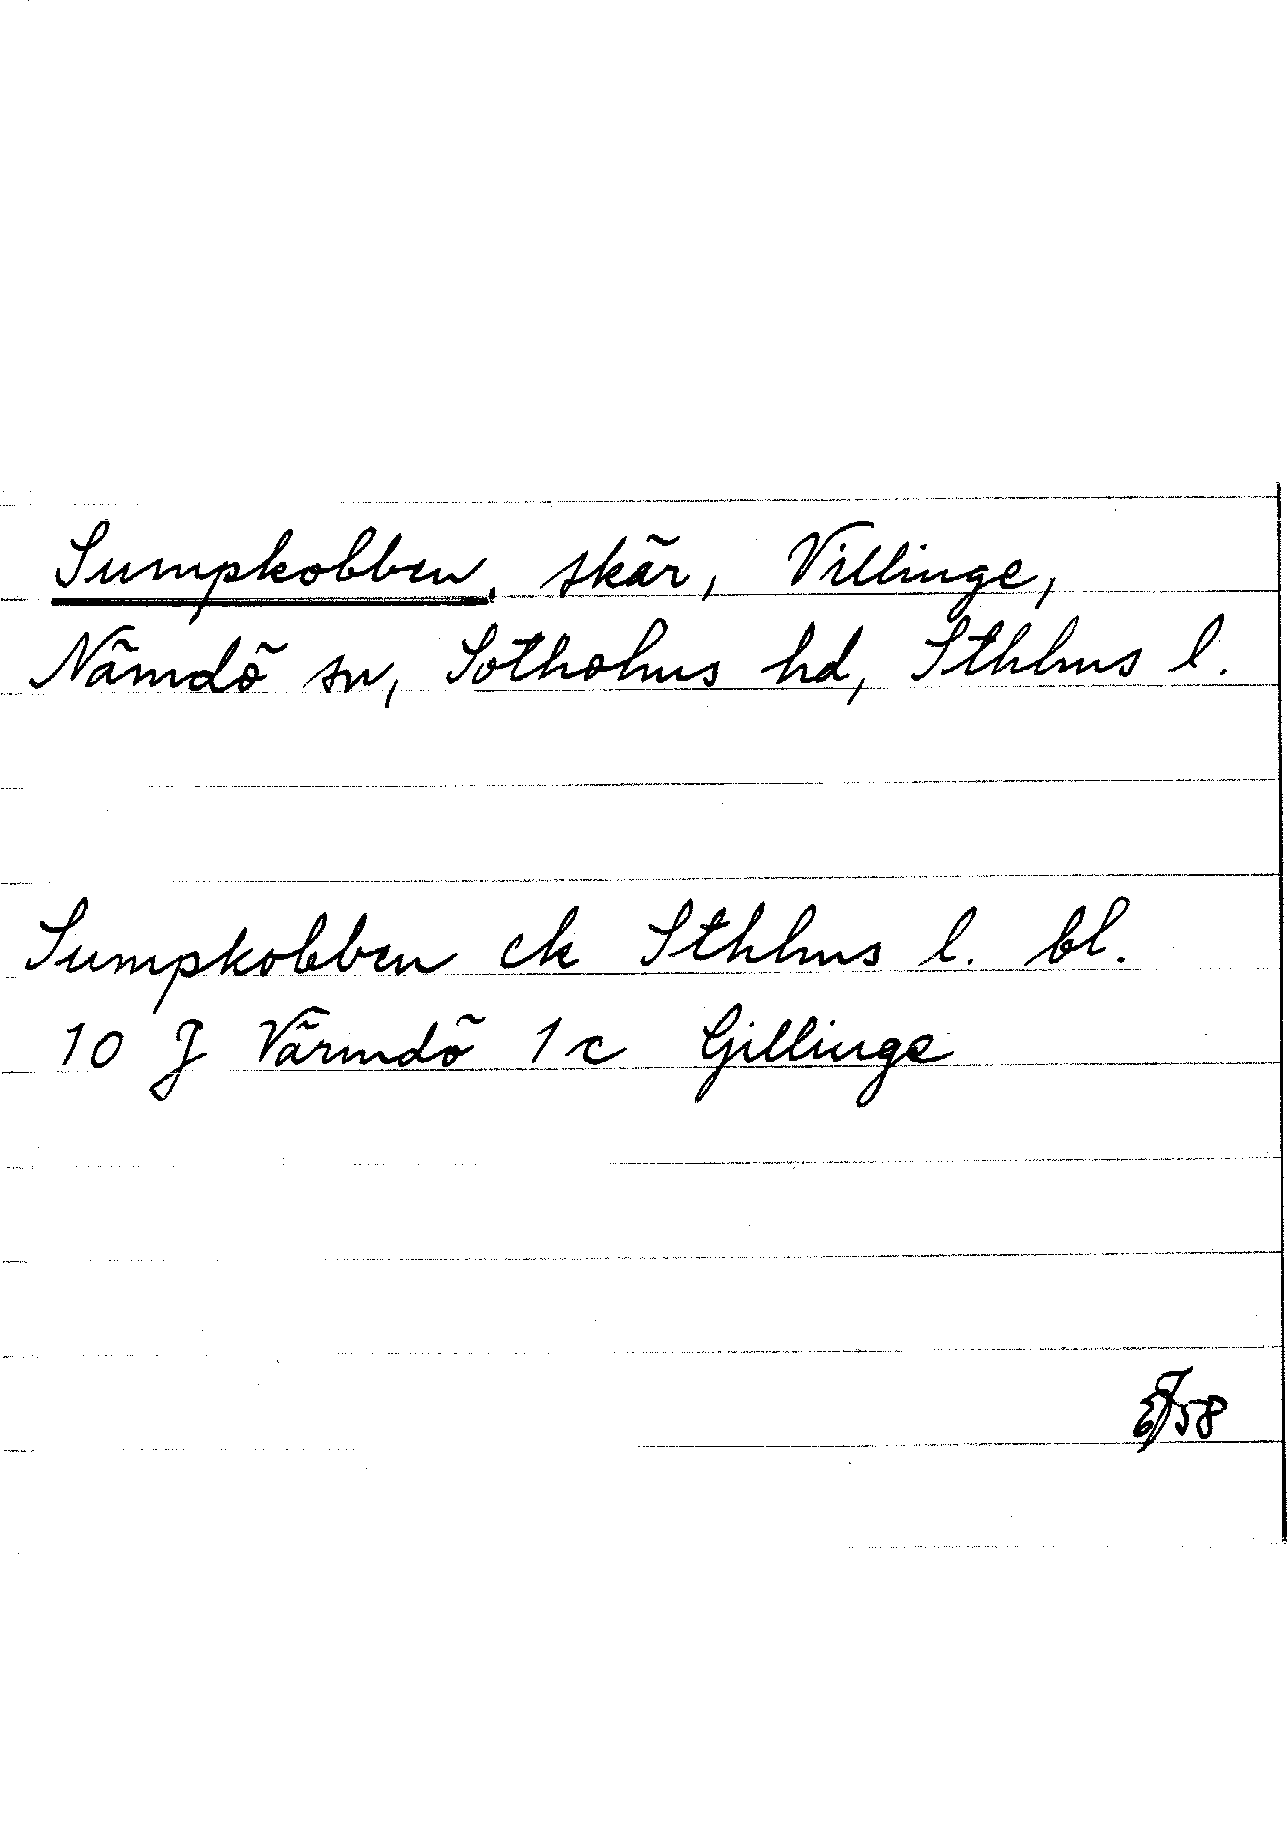 Sumpkobben, skär, Villinge,
Nämdö sn, Sotholms hd, Sthlms l.
Sumpkobben ek Sthlms l. bl.
10 J Värmdö 1c Gillinge
58